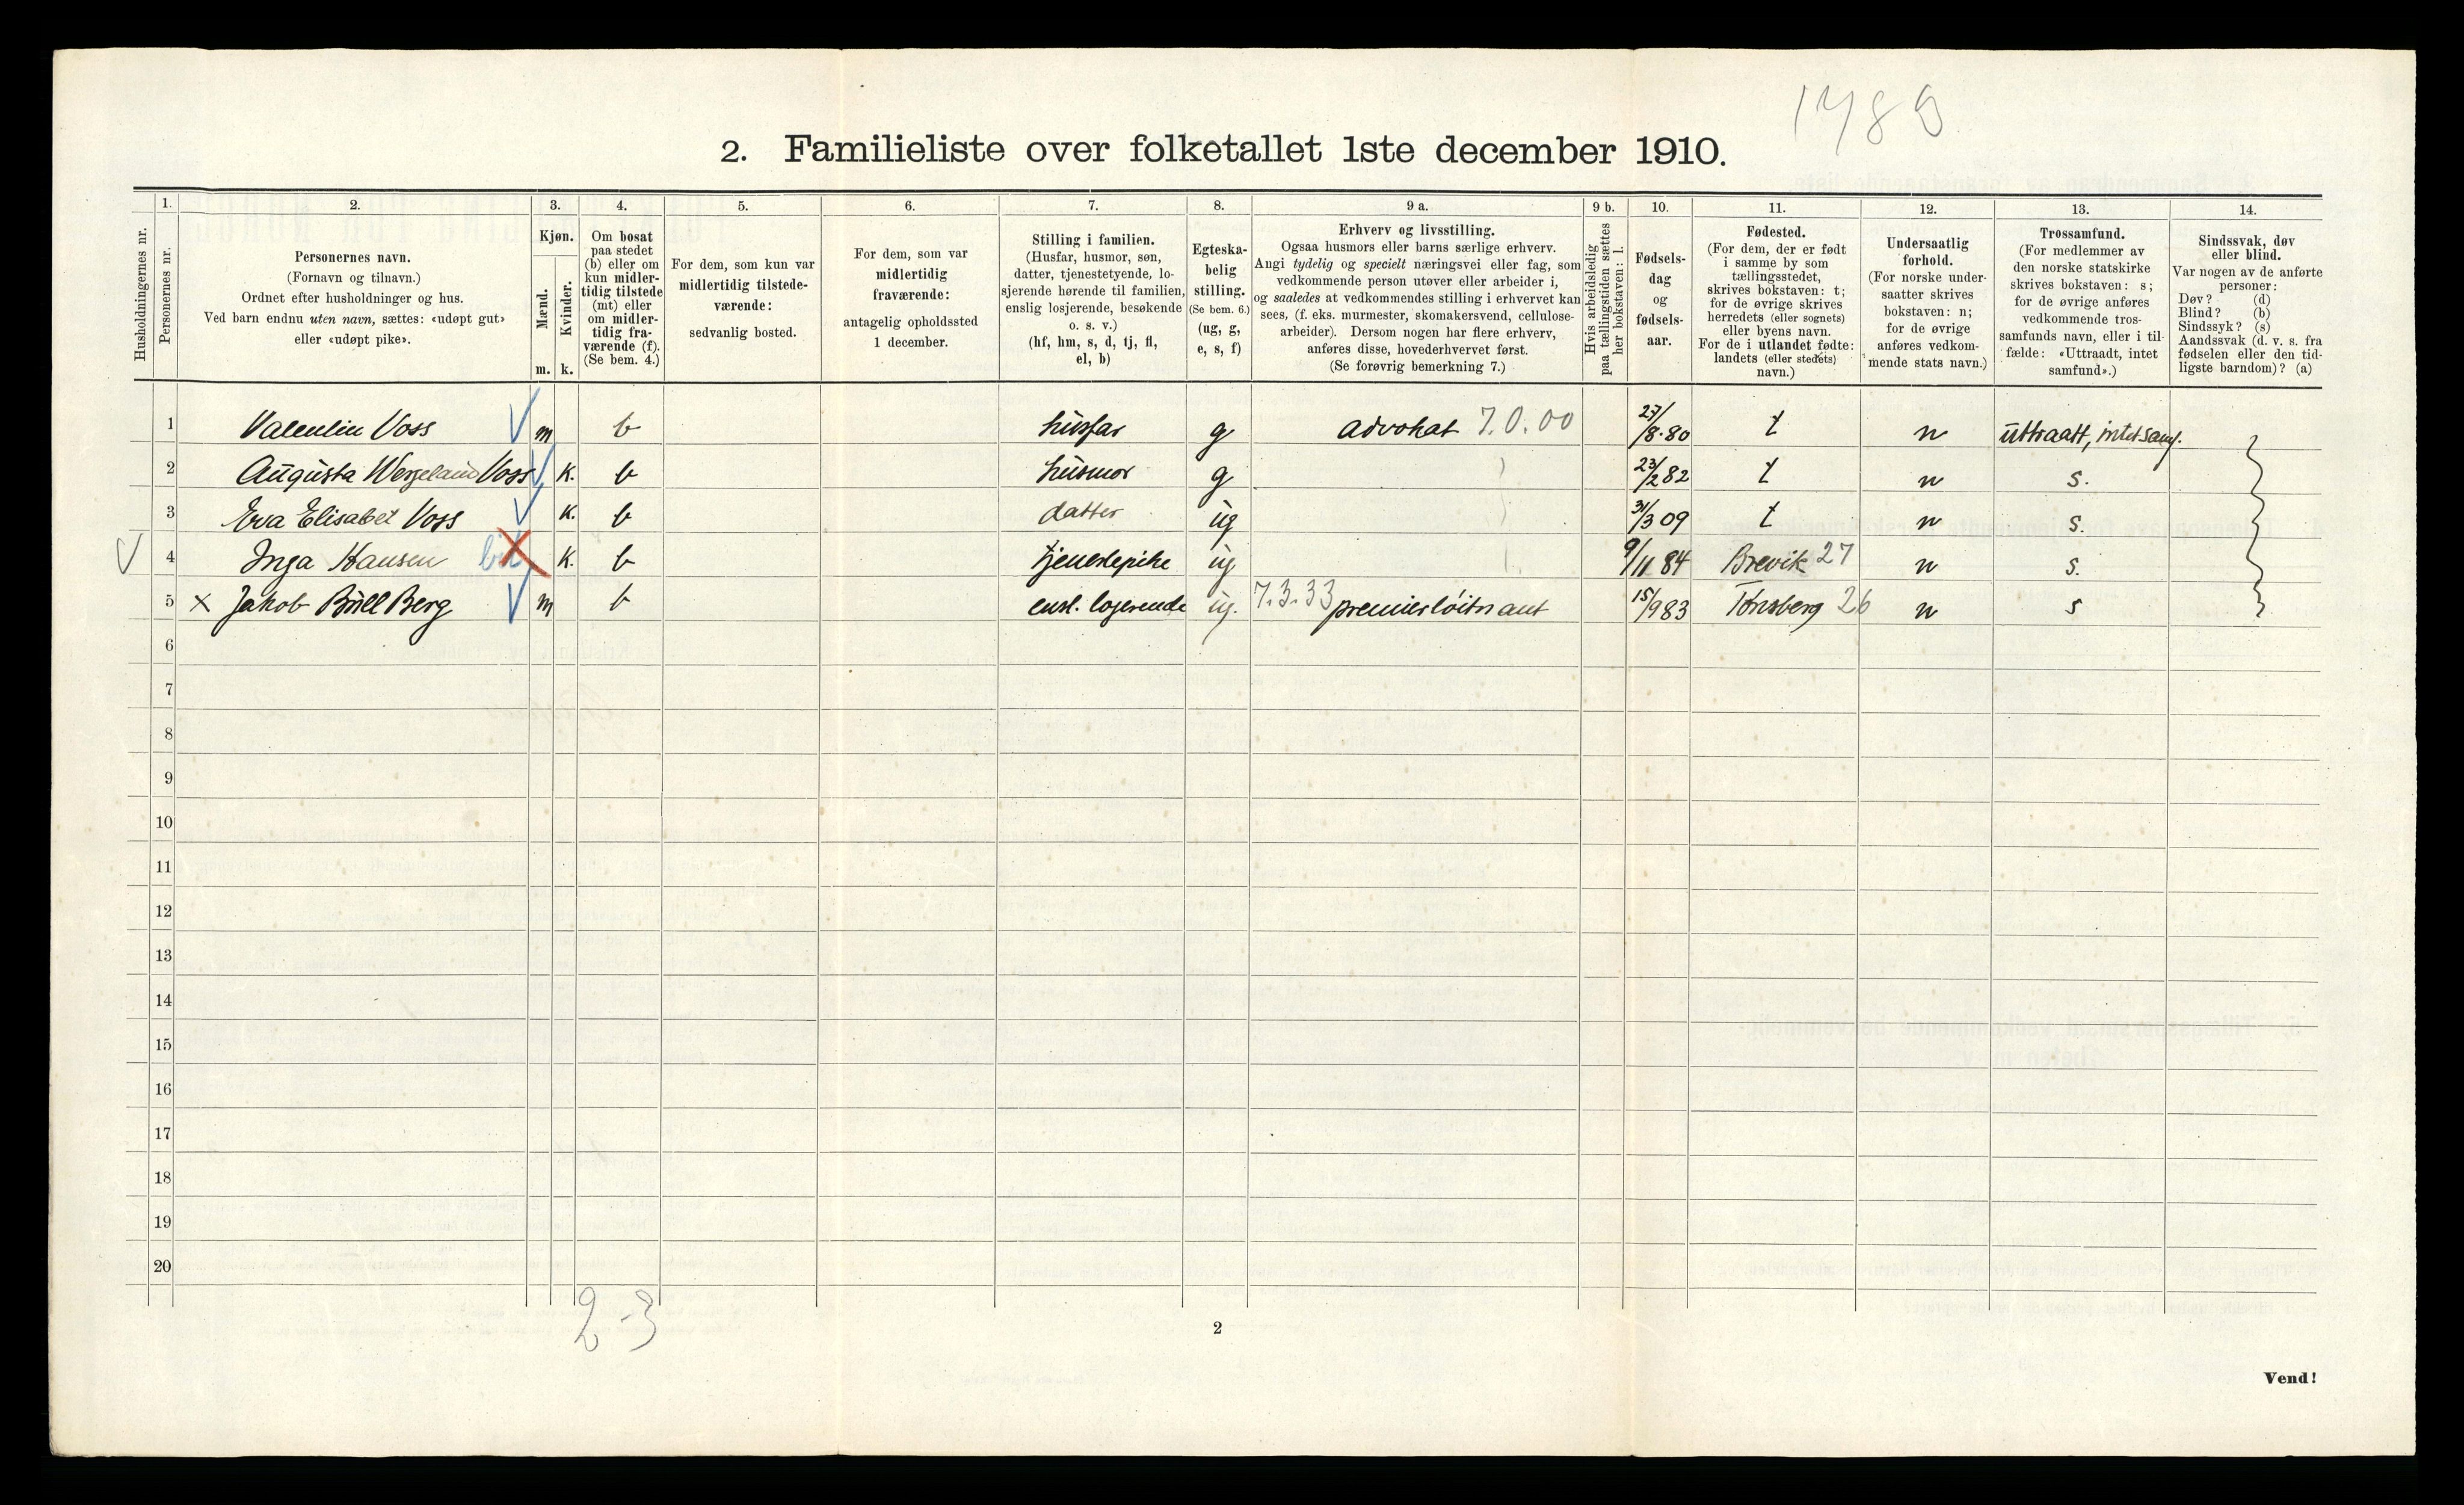 1789
2. Familieliste over folketallet 1ste december 1910.
Husholdningernes nr.
1.
Personernes nr.
2.
Personernes navn.
(Fornavn og tilnavn.)
Ordnet efter husholdninger og hus.
Ved barn endnu uten navn, sættes: «udøpt gut»
eller «udøpt pike».
3.
Kjøn.
Mænd.
Kvinder.
m. k.
4.
Om bosat
paa stedet
(b) eller om
kun midler-
tidig tilstede
(mt) eller
om midler-
tidig fra-
værende (f).
(Se bem. 4.)
5.
For dem, som kun var
midlertidig tilstede-
værende:
sedvanlig bosted.
6.
For dem, som var
midlertidig
fraværende:
antagelig opholdssted
1 december.
7.
Stilling i familien.
(Husfar, husmor, søn,
datter, tjenestetyende, lo-
sjerende hørende til familien,
enslig losjerende, besøkende
o. s. v.)
(hf, hm, s, d, tj, fl,
el, b)
8.
Egteska-
belig
stilling.
(Se bem. 6.)
(ug, g,
e, s, f)
9 a.
Erhverv og livsstilling.
Ogsaa husmors eller barns særlige erhverv.
Angi tydelig og specielt næringsvei eller fag, som
vedkommende person utøver eller arbeider i,
og saaledes at vedkommendes stilling i erhvervet kan
sees, (f. eks. murmester, skomakersvend, cellulose-
arbeider). Dersom nogen har flere erhverv,
anføres disse, hovederhvervet først.
(Se forøvrig bemerkning 7.)
9 b.
Hvis arbeidsledig
paa tællingstiden sættes
her bokstaven: l.
10.
Fødsels-
dag
og
fødsels-
aar.
11.
Fødested.
(For dem, der er født
i samme by som
tællingsstedet,
skrives bokstaven: t;
for de øvrige skrives
herredets (eller sognets)
eller byens navn.
For de i utlandet fødte:
landets (eller stedets)
navn.)
12.
Undersaatlig
forhold.
(For norske under-
saatter skrives
bokstaven: n;
for de øvrige
anføres vedkom-
mende stats navn.)
13.
Trossamfund.
(For medlemmer av
den norske statskirke
skrives bokstaven: s;
for de øvrige anføres
vedkommende tros-
samfunds navn, eller i til-
fælde: «Uttraadt, intet
samfund».)
14.
Sindssvak, døv
eller blind.
Var nogen av de anførte
personer:
Døv? (d)
Blind? (b)
Sindssyk? (s)
Aandssvak (d. v. s. fra
fødselen eller den tid-
ligste barndom)? (a)
1 Valentin Voss m b husfar g advokat 7.0.00 27/8·80 t n uttraatt, intet samf.
2 Augusta Wergeland Voss k. b husmor g 23/2 82 t n s.
3 Eva Elisabet Voss k. b datter ug 31/3 09 t n s.
4 Inga Hansen k. b tjenestepike ug 9/11 84 Brevik 27 n s.
5 x Jakob Büll Berg m b ensl. losjerende ug. 7.3.33 premierløitnant 15/9 83 Tønsberg 26 n s
6
7
8
9
10
11
12
13
14
15
16
17
18
19
20
2-3
2
Vend!